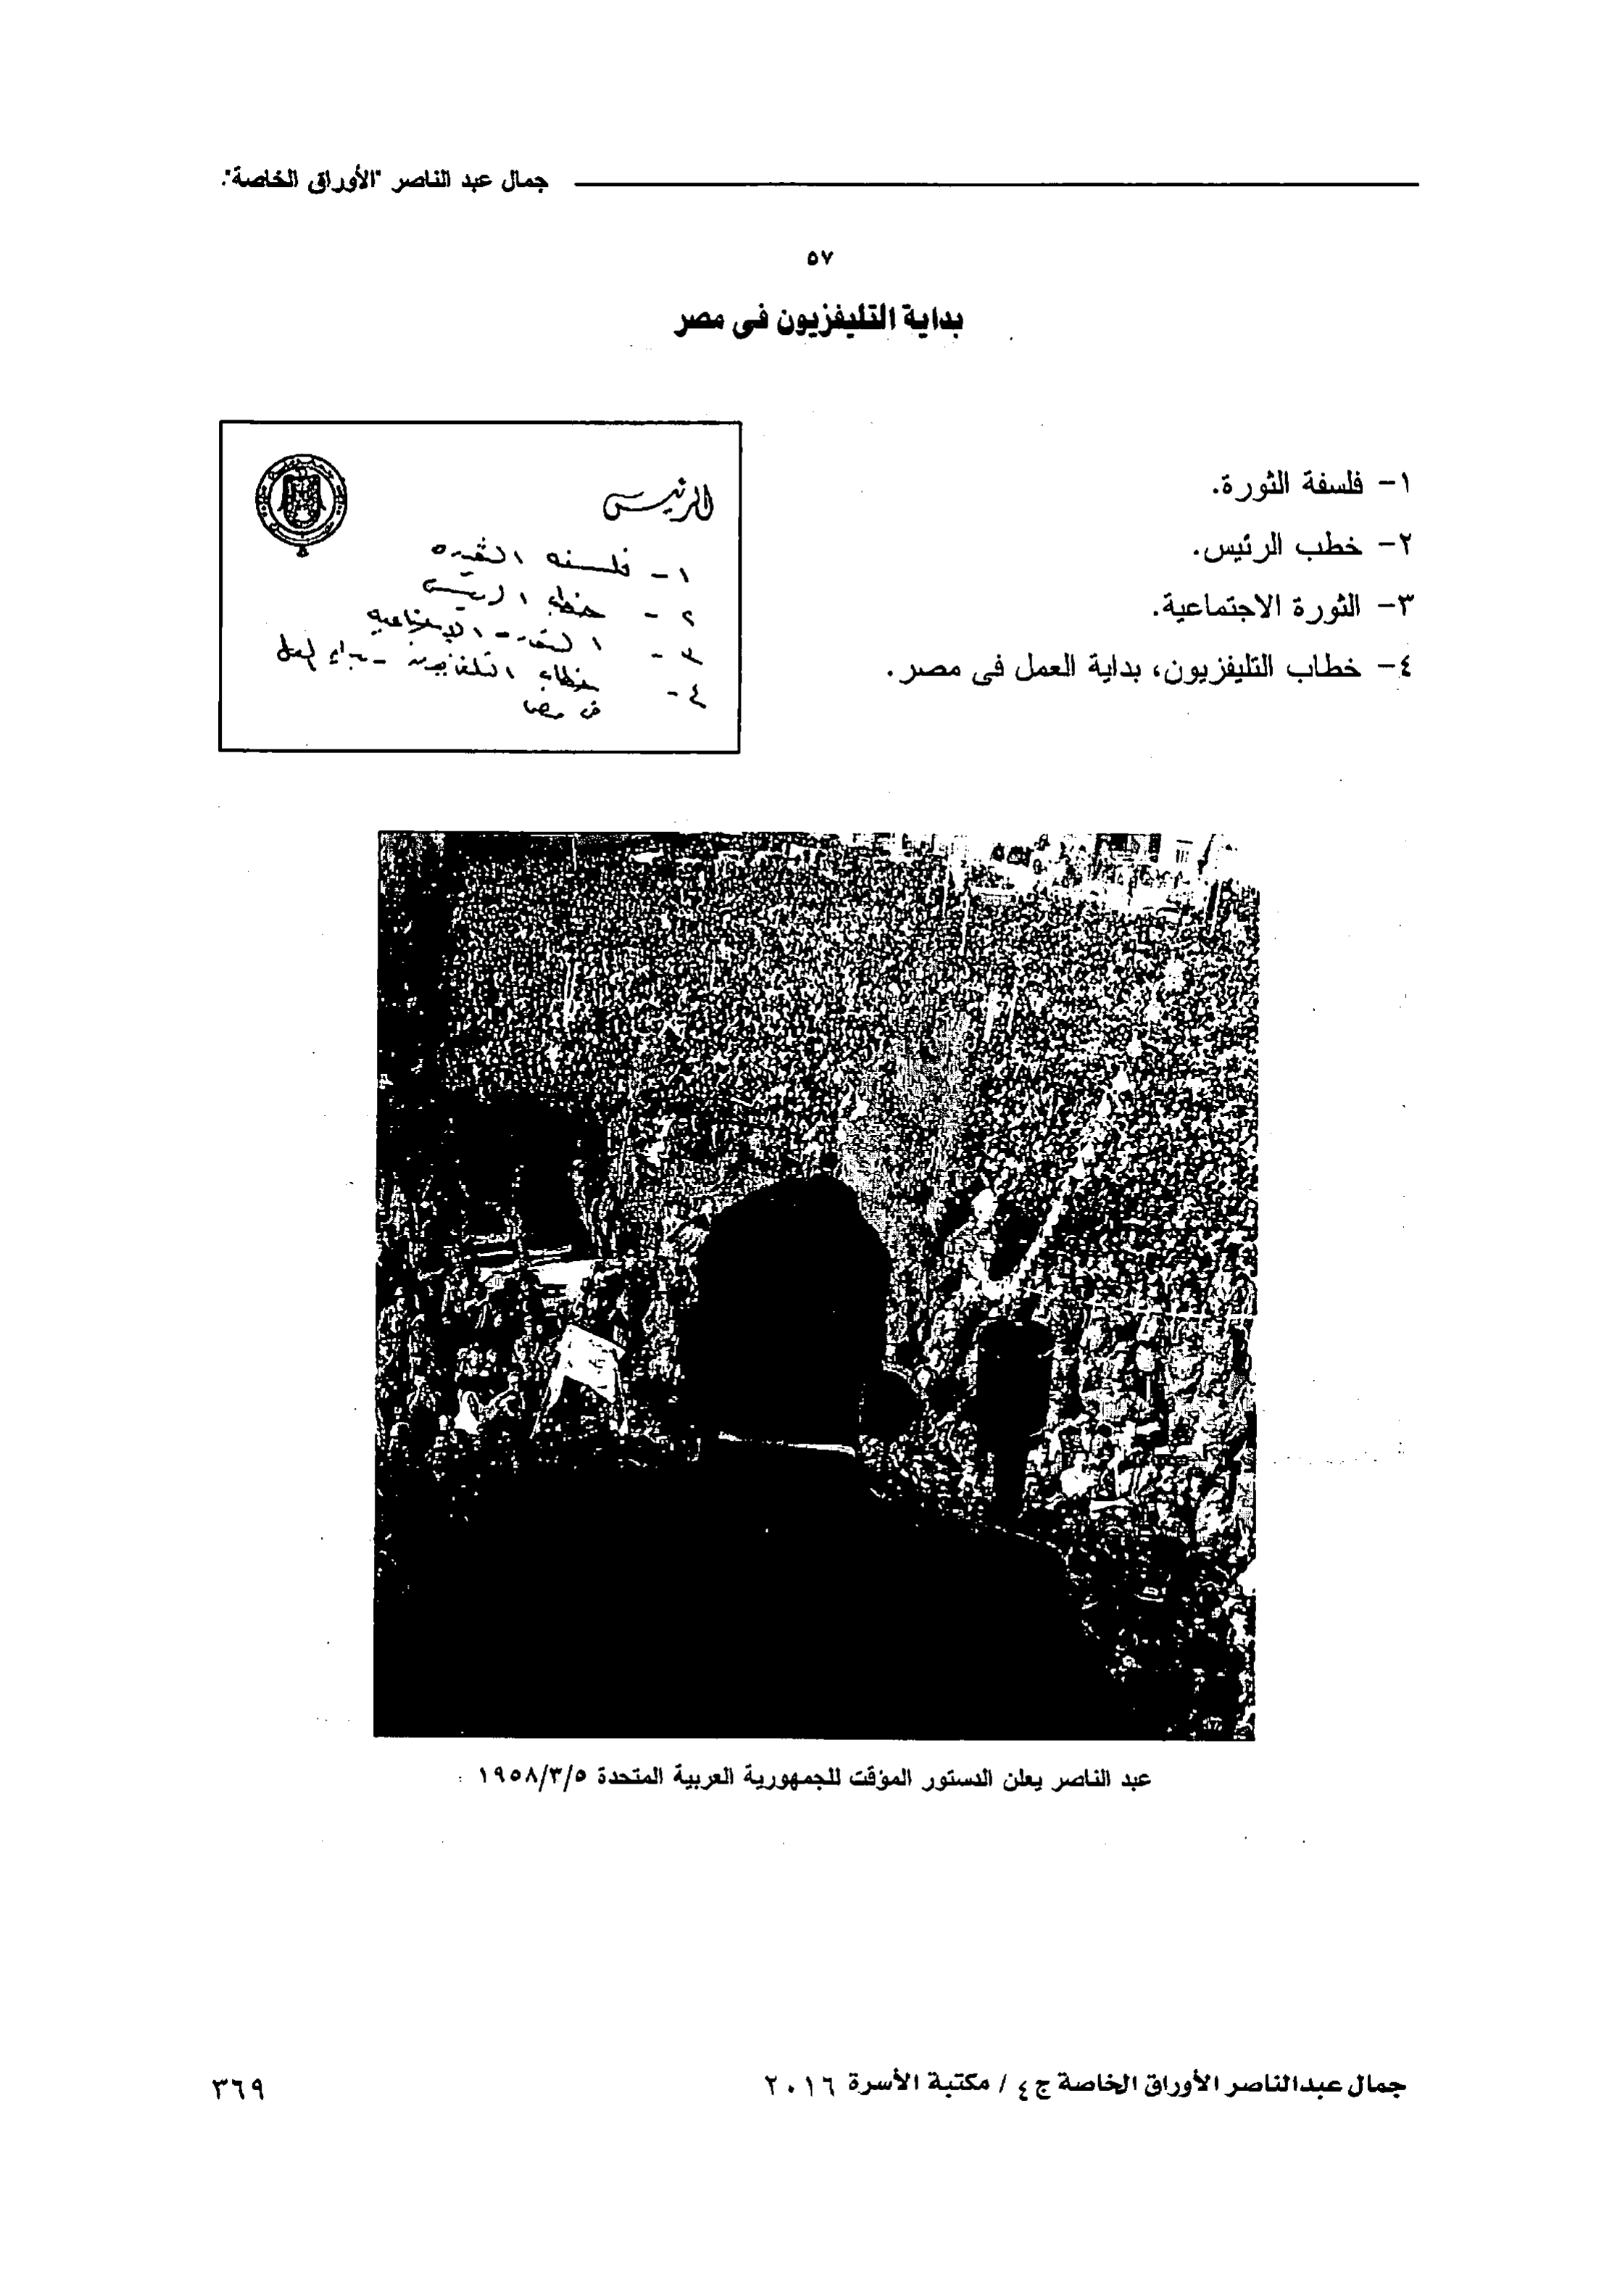 جمال عبد الناصر "الأوراق الخاصة".
٥٧
بداية التليفزيون فى مصر
١- فلسفة الثورة.
٢- خطب الرئيس.
٣- الثورة الاجتماعية.
٤- خطاب التليفزيون، بداية العمل فى مصر.
الرئيس
١- فلسفه الثوره
٢- خطب الرئيس
٣- الثوره الاجتماعيه
٤- خطاب التلفزيون - بداية العمل
فى مصر
عبد الناصر يعلن الدستور المؤقت للجمهورية العربية المتحدة ١٩٥٨/٣/٥
جمال عبدالناصر الأوراق الخاصة ج٤ / مكتبة الأسرة ٢٠١٦
٣٦٩